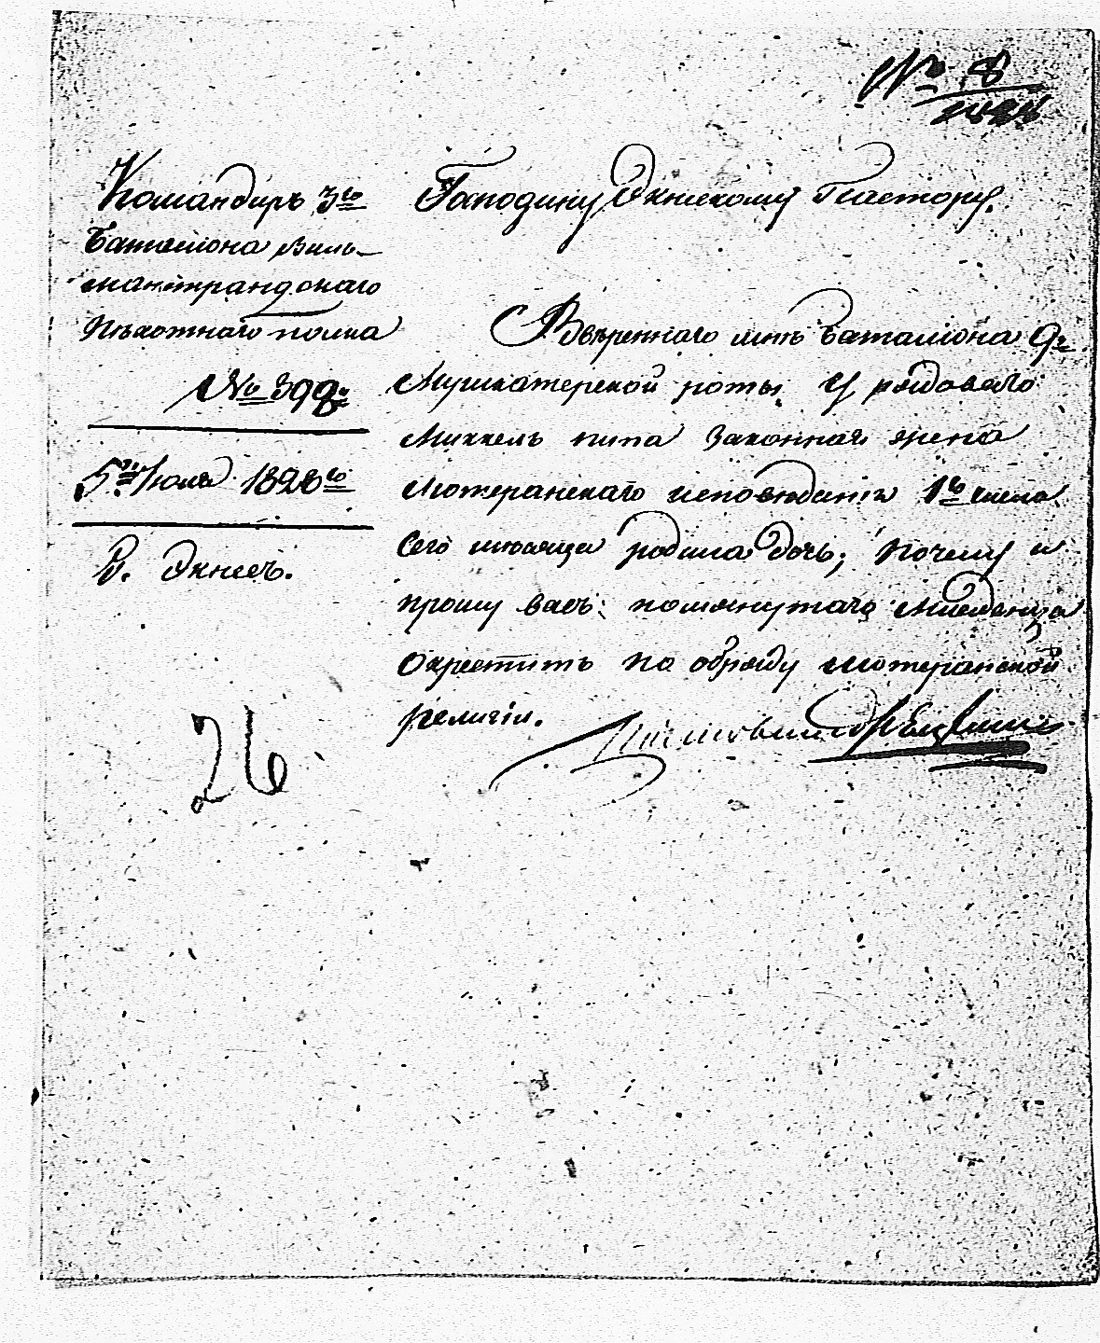 № 8
1828
Командиръ 3го
Баталіона Виль-
манстрандскаго
Пѣхотнаго полка
№ 399.
5го Іюля 1828го
Р. Экнесъ.
Гаподину Экнскому Пастору.
Ввѣреннаго мнѣ баталіона 9й
Мушкатерской роты, У рядоваго
Миккель пипа законная жена
Лютеранскаго исповѣданія 1го числа
Сего мѣсяца родила дочь; почему и
прошу васъ: помянутаго младенца
Окрестить по обряду лютеранской
религіи.
26